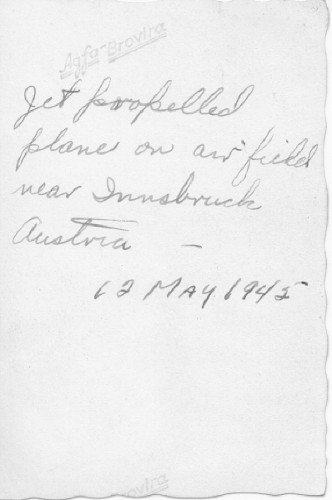 Agfa-Brovira
Jet propelled
plane on air field
near Innsbruck
Austria —
12 May 1945
Brovira